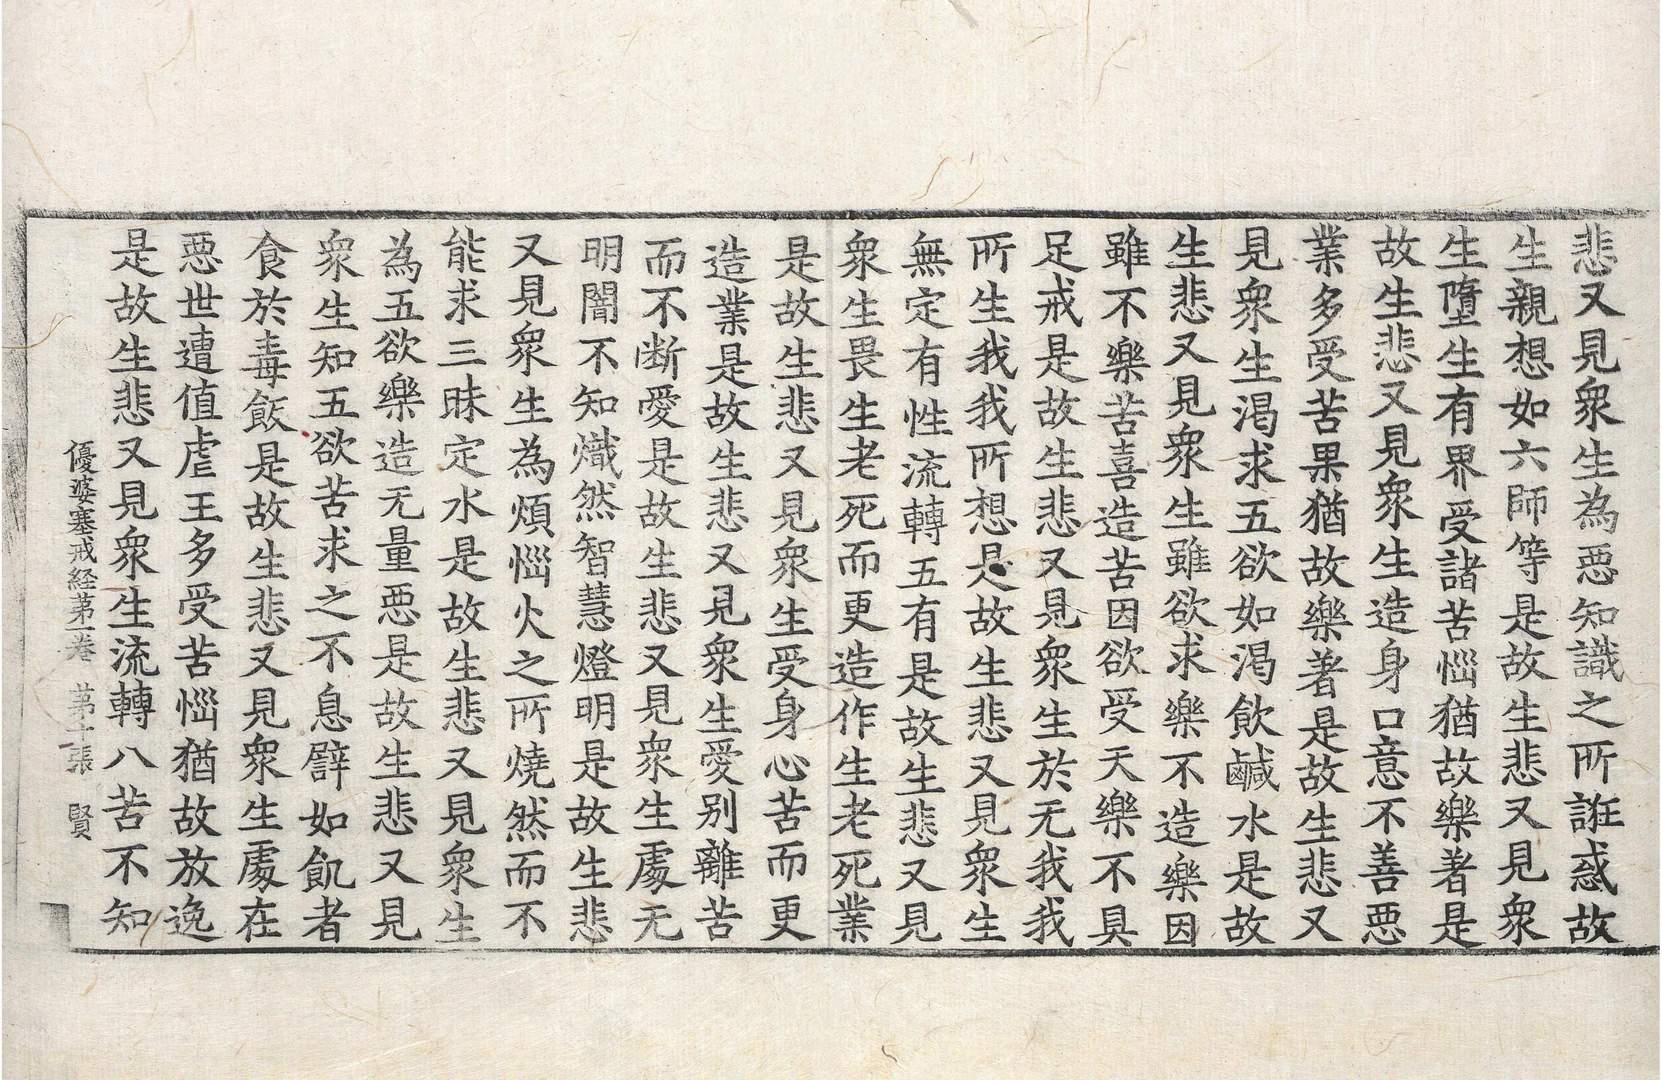 悲又見衆生為惡知識之所誑惑故
生親想如六師等是故生悲又見衆
生墮生有界受諸苦惱猶故樂著是
故生悲又見衆生造身口意不善惡
業多受苦果猶故樂著是故生悲又
見衆生渴求五欲如渴飲鹹水是故
生悲又見衆生雖欲求樂不造樂因
雖不樂苦喜造苦因欲受天樂不具
足戒是故生悲又見衆生於无我我
所生我我所想是故生悲又見衆生
無定有性流轉五有是故生悲又見
衆生畏生老死而更造作生老死業
是故生悲又見衆生受身心苦而更
造業是故生悲又見衆生愛別離苦
而不断愛是故生悲又見衆生處无
明闇不知熾然智慧燈明是故生悲
又見衆生為煩惱火之所燒然而不
能求三昧定水是故生悲又見衆生
為五欲樂造无量惡是故生悲又見
衆生知五欲苦求之不息譬如飢者
食於毒飯是故生悲又見衆生處在
惡世遭值虐王多受苦惱猶故放逸
是故生悲又見衆生流轉八苦不知
優婆塞戒経苐一卷 苐十張 賢